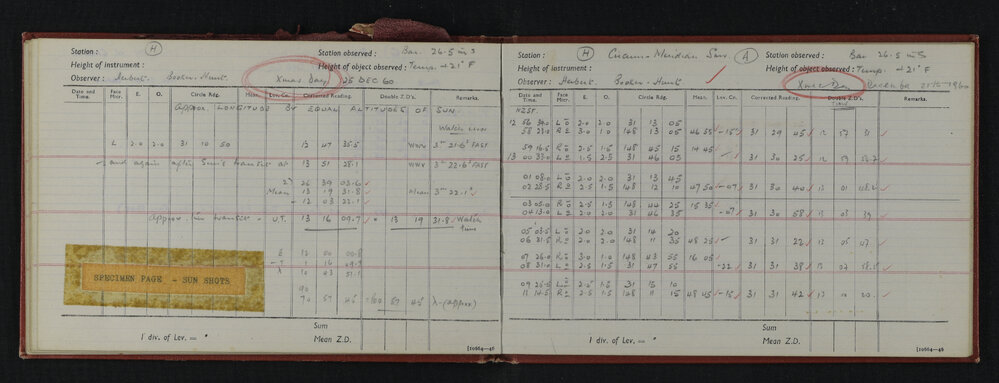 Station : H Station observed : Bar. 26.5 ins
Height of instrument : Height of object observed : Temp. +21° F
Observer : Herbert. Booker. Hunt. Xmas Day 25 DEC 60
Date and Time. Face Micr. E. O. Circle Rdg. Mean. Lev. Cn. Corrected Reading. Double Z.D's. Remarks.
Approx. LONGITUDE BY EQUAL ALTITUDES OF SUN.
Watch
L 2.0 2.0 31 10 50 12 47 35.5 WWV 3m 21.6s FAST
and again after Sun's transit at 13 51 28.1 WWV 3m 22.6s FAST
2) 26 39 03.6
Mean 13 19 31.8 Mean 3m 22.1s
- 12 03 22.1
Approx. transit = U.T. 13 16 09.7 = 13 19 31.8 Watch time
E 12 00 00.8
SPECIMEN PAGE - SUN SHOTS
90
70 57 45 = 160 57 45 λ (approx)
Sum
1 div. of Lev. = " Mean Z.D.
[10664—46
Station : H Circum-Meridian Sun. A Bar 26.5 ins
Height of instrument : Height of object observed : Temp. +21° F
Observer : Herbert Booker-Hunt Xmas Day December 25th 1960
Date and Time. Face Micr. E. O. Circle Rdg. Mean. Lev. Cn. Corrected Reading. Double Z.D's. Remarks.
12 56 34.0 L 2.0 2.0 31 13 05
58 23.0 R 3.0 1.0 148 13 05 46 55 -15 31 29 45 12 57 31
59 16.5 R 2.5 1.5 148 45 15 14 45
13 00 33.0 L 1.5 2.5 31 46 05 31 30 25 12 59
01 08.0 L 2.0 2.0 31 13 45
02 28.5 R 2.5 1.5 148 12 10 47 50 -07 31 30 40 13 01
03 05.0 R 2.5 1.5 148 44 25 15 35
04 13.0 L 2.0 2.0 31 46 35 -07 31 30 58 13 03 39
05 03.5 L 2.0 2.0 31 14 20
06 31.5 R 2.0 2.0 148 11 35 48 25 31 31 22 13 05 47
07 26.0 R 3.0 1.0 148 43 55 16 05
08 31.0 L 2.5 1.5 31 47 55 -22 31 31 38 13 07
09 26.5 L 2.0 2.0 31 15 10
11 14.5 R 2.5 1.5 148 11 15 48 45 -15 31 31 42 13 10 20.
Sum
1 div. of Lev. = " Mean Z.D.
[10664—46